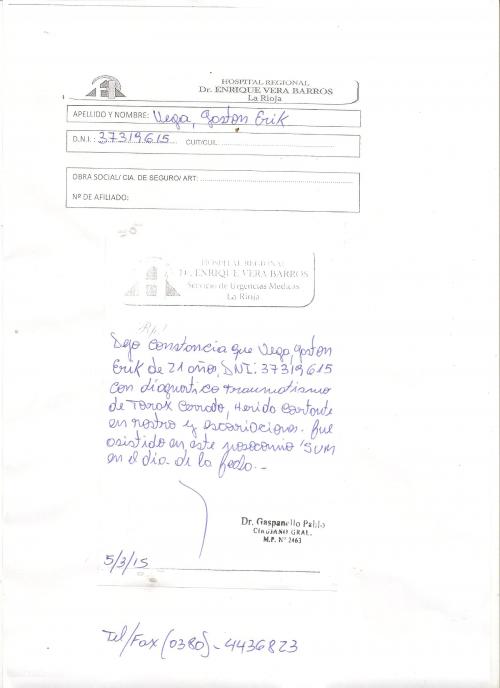 HOSPITAL REGIONAL
Dr. ENRIQUE VERA BARROS
La Rioja
APELLIDO Y NOMBRE: Vega, Gaston Erik
D.N.I. : 37319615 CUIT/CUIL
OBRA SOCIAL/ CIA. DE SEGURO/ ART:
Nº DE AFILIADO:
HOSPITAL REGIONAL
Dr. ENRIQUE VERA BARROS
Servicio de Urgencias Medicas
La Rioja
Rp/
Dejo constancia que Vega, Gaston
Erik de 21 años, DNI: 37319615
con diagnostico traumatismo
de Torax Cerrado, Herida Cortante
en rostro y escoriaciones. fue
asistido en este nosocomio SUM
en el dia de la fecha.-
Dr. Gaspanello Pablo
CIRUJANO GRAL.
M.P. N° 2463
5/3/15
Tel/Fax (0380)-4436823